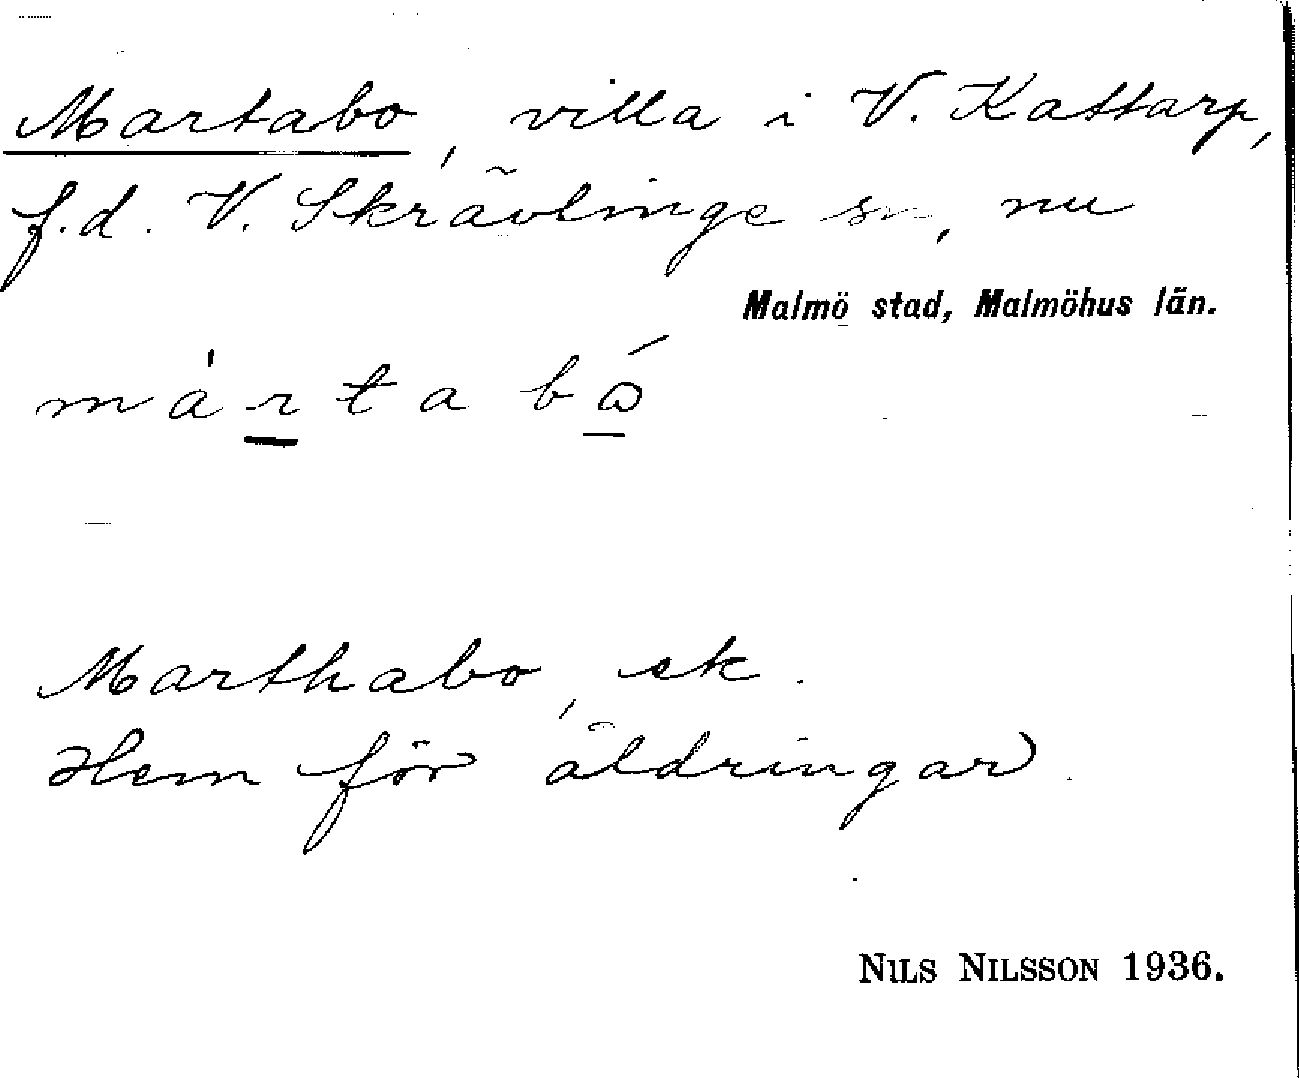 Martabo, villa i V. Kattarp,
f.d. V. Skrävlinge sn, nu
Malmö stad, Malmöhus län.
ma'rtabó
Marthabo, ek.
Hem för åldringar.
NILS NILSSON 1936.